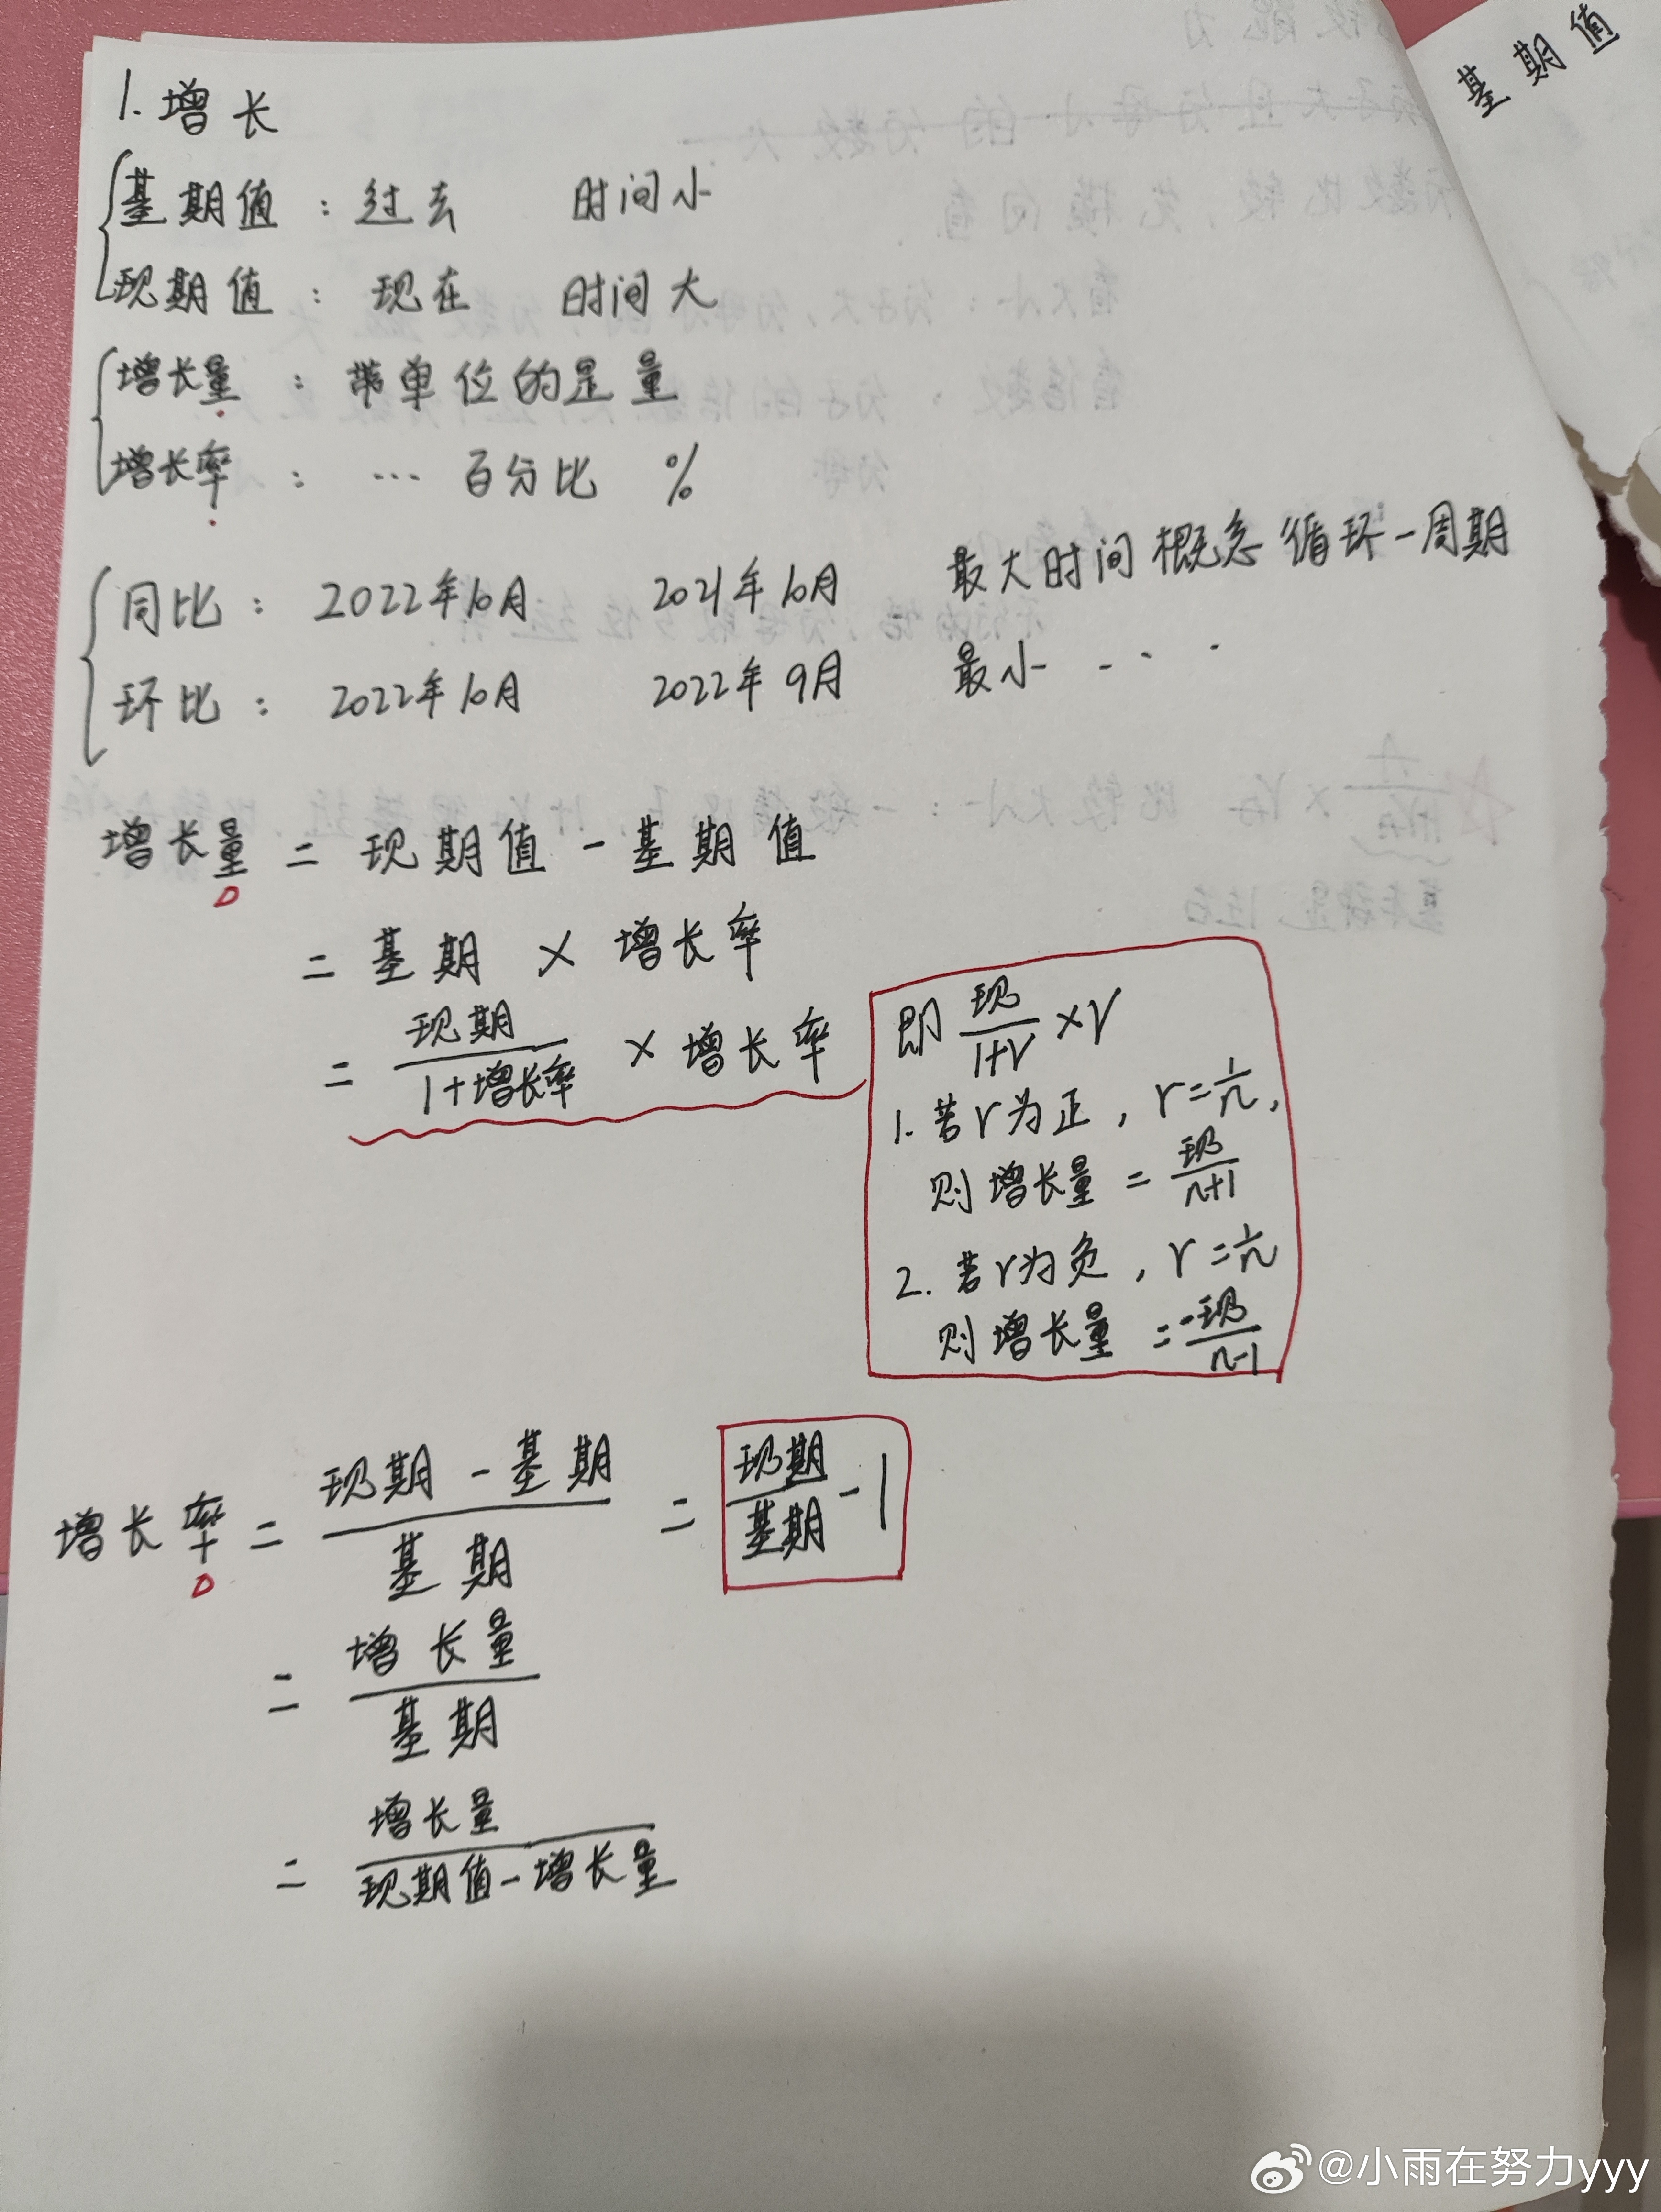 1.增长
基期值：过去 时间小
现期值：现在 时间大
增长量：带单位的是量
增长率：… 百分比 %
同比：2022年10月 2021年10月 最大时间概念循环一周期
环比：2022年10月 2022年9月 最小 ...
增长量 = 现期值 - 基期值
= 基期 × 增长率
= 现期/1+增长率 × 增长率
即 现/1+r ×r
1.若r为正，r=1/n，
则增长量 = 现/n+1
2.若r为负，r=1/n
则增长量 = -现/n-1
增长率 = 现期 - 基期/基期 = 现期/基期 - 1
= 增长量/基期
= 增长量/现期值-增长量
基期值
@小雨在努力yyy